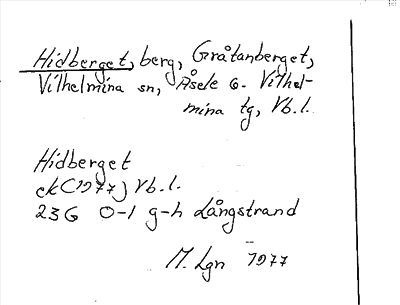 Hidberget, berg, Gråtanberget,
Vilhelmina sn, Åsele o. Vilhel-
mina tg, Vb.l.
Hidberget
ek (1977) Vb.l.
23G 0-1 g-h Långstrand
M. Lgn 1977